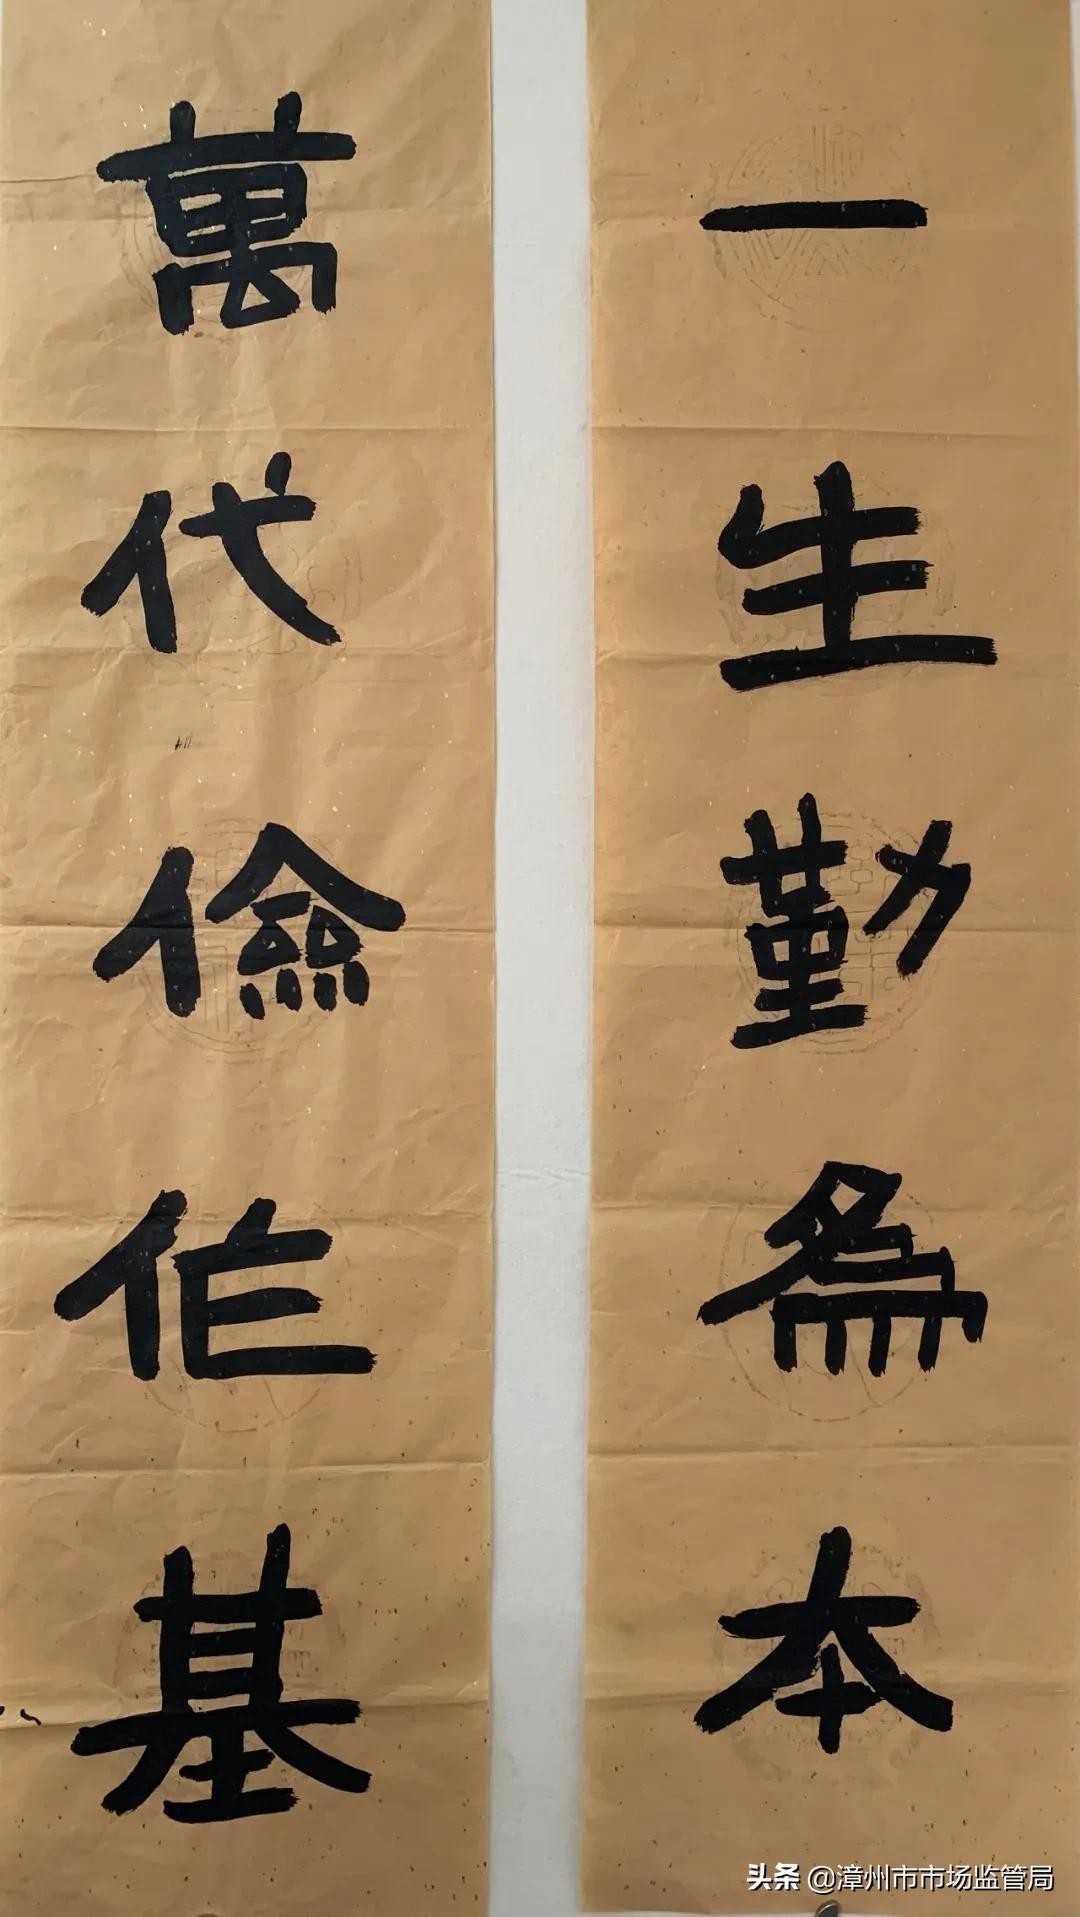 一生勤為本
萬代儉作基
头条 @漳州市市场监管局